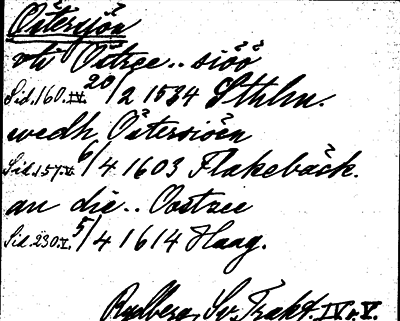 Östersjön
uti Östzee.. siöö
Sid. 160. IV. 20/2 1534 Sthlm.
wedh Östersiöen
Sid. 157. V. 6/4 1603 Flakebäck.
an die.. Oostzee
Sid. 230. V. 5/4 1614 Haag.
Rydberg, Sv. Trakt. IV o. V.